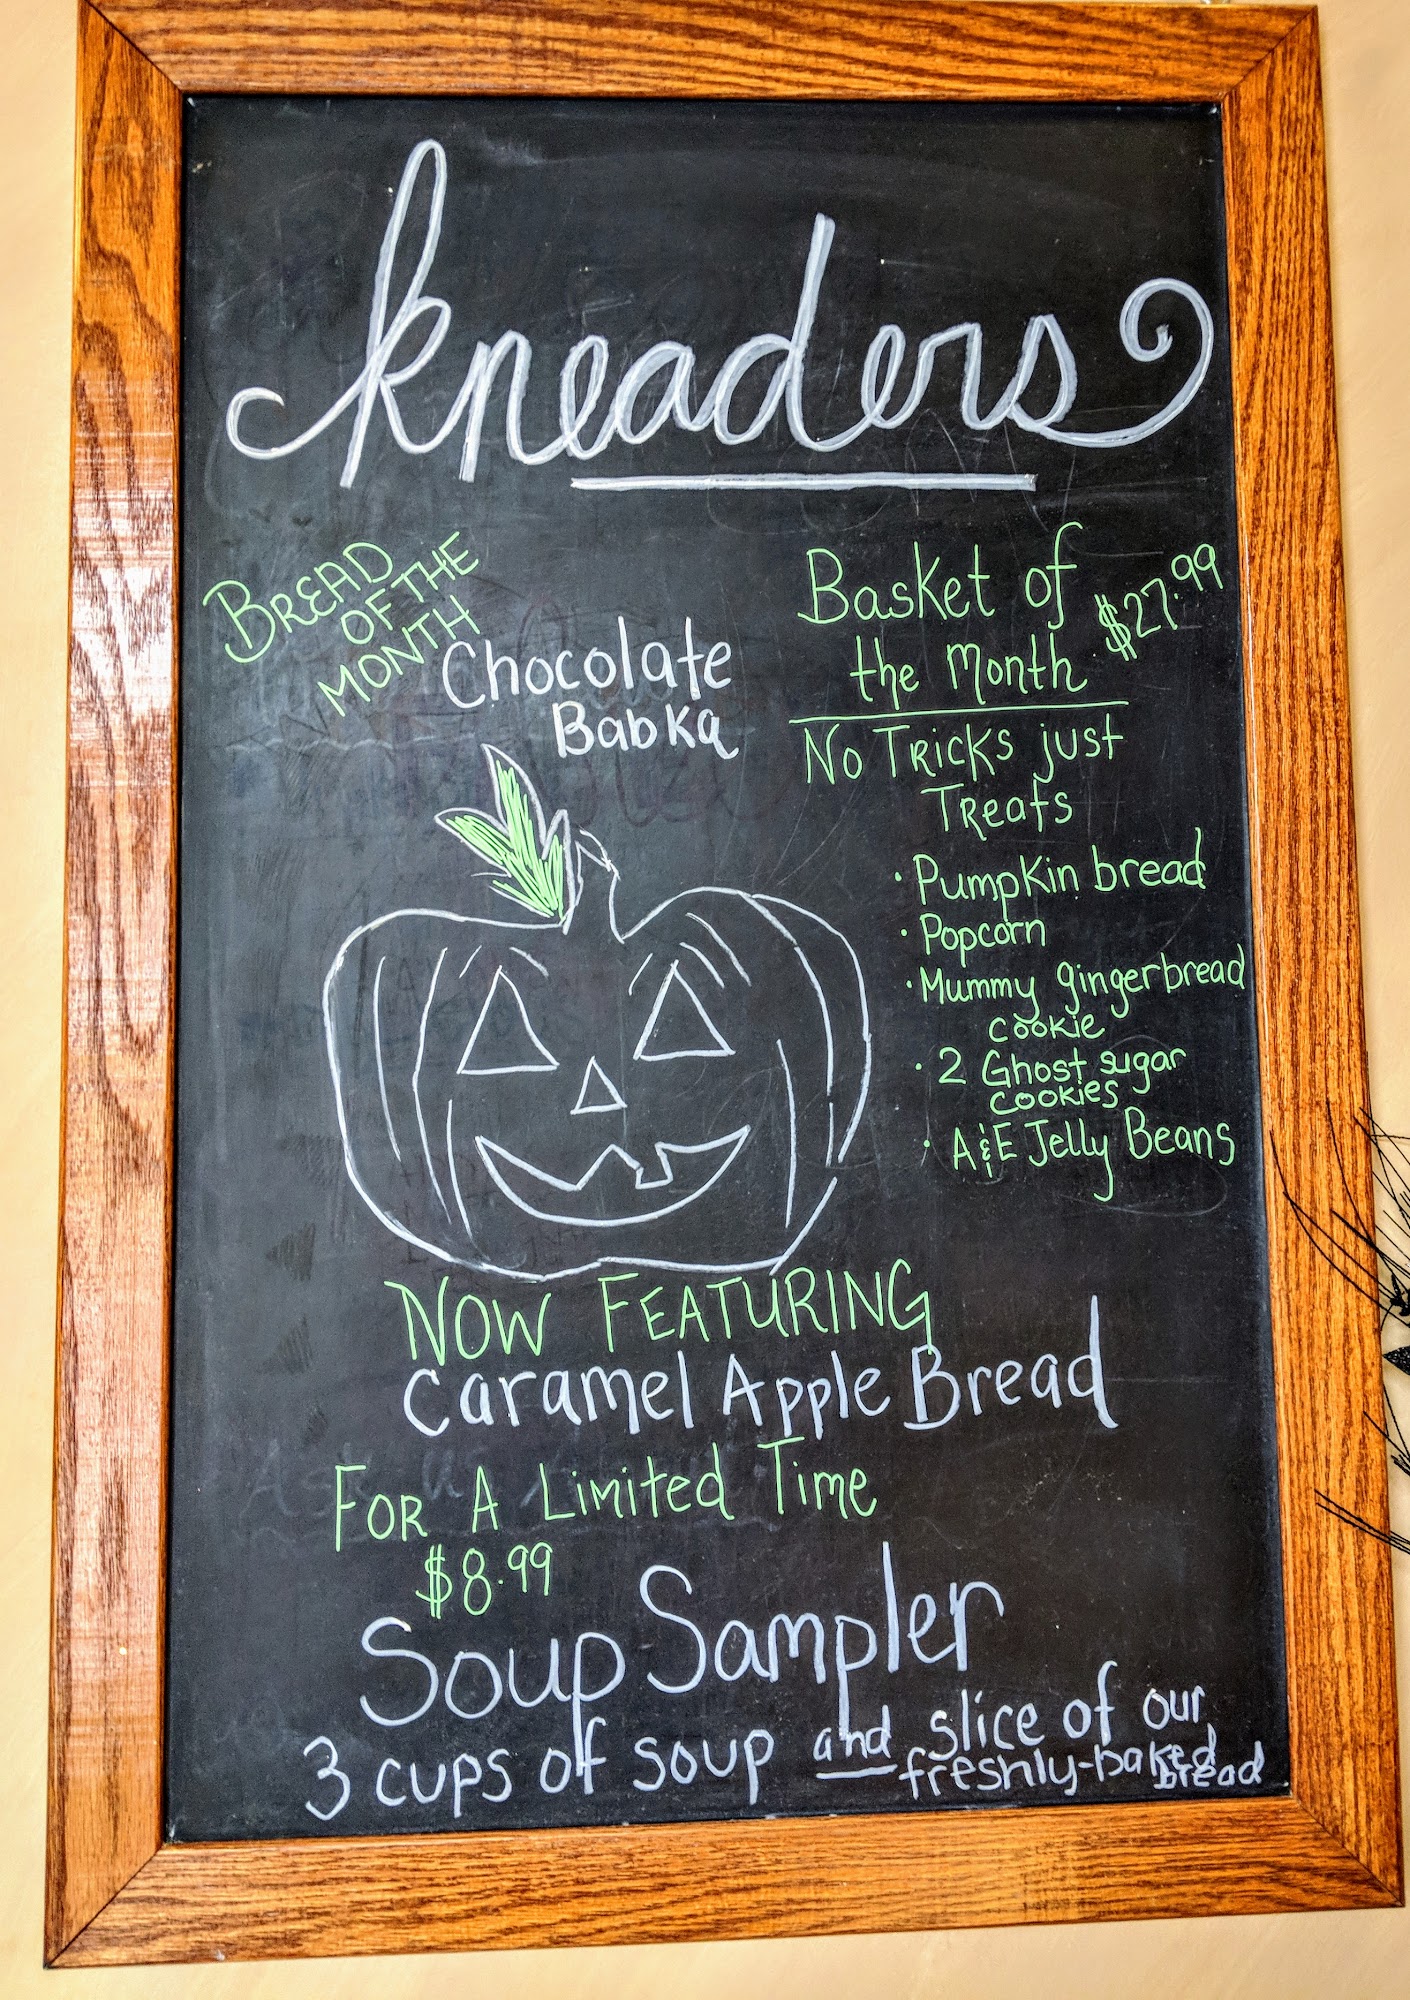 kneaders
BREAD
OF THE
MONTH
Chocolate
Babka
Basket of
the Month
$27.99
No Tricks just
Treats
· Pumpkin bread
· Popcorn
· Mummy gingerbread
cookie
· 2 Ghost sugar
cookies
· A&E Jelly Beans
NOW FEATURING
Caramel Apple Bread
FOR A Limited Time
$8.99
Soup Sampler
3 cups of soup and slice of our
freshly-baked
bread